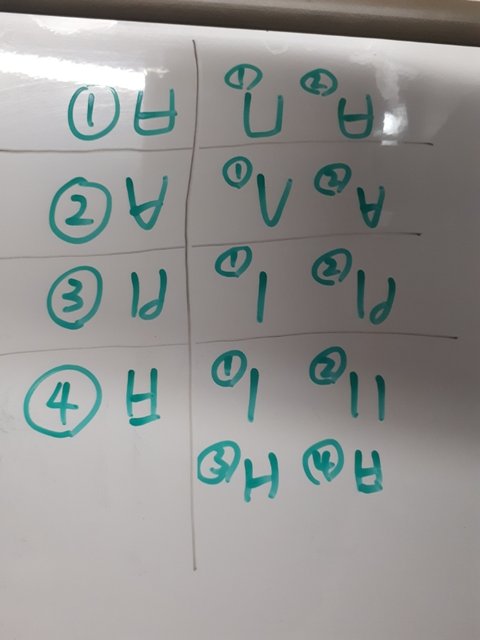 ① ㅂ ① U ② ㅂ
② ㅂ ① V ② ㅂ
③ ㅂ ① l ② ㅂ
④ ㅂ ① l ② ll
③ H ④ ㅂ